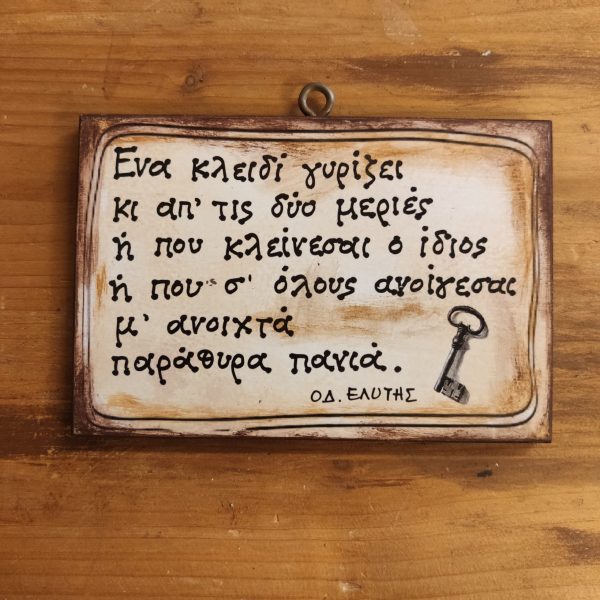 Ένα κλειδί γυρίζει
κι απ' τις δύο μεριές
ή που κλείνεσαι ο ίδιος
ή που σ' όλους ανοίγεσαι
μ' ανοιχτά
παράθυρα πανιά.
ΟΔ. ΕΛΥΤΗΣ